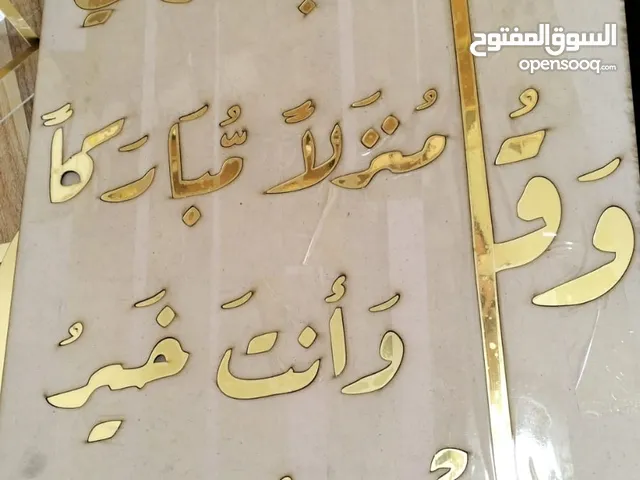 السوق المفتوح
opensooq.com
وَقُ
مُنزَلاً مُّبَارَكاً
وَأَنتَ خَيرُ